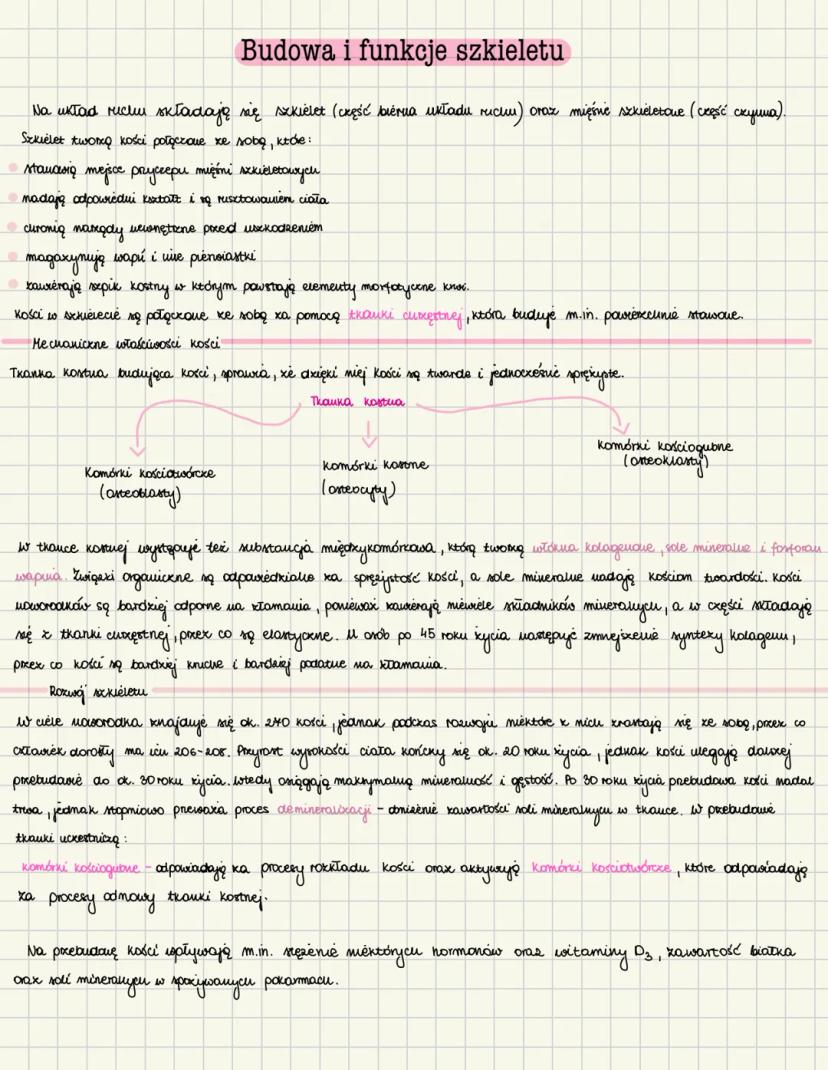 Budowa i funkcje szkieletu
Na układ ruchu składają się szkielet (część bierna układu ruchu) oraz mięśnie szkieletowe (część czynna).
Szkielet tworzą kości połączone ze sobą, które:
stanowią miejsce przyczepu mięśni szkieletowych
nadają odpowiedni kształt i są rusztowaniem ciała
chronią narządy wewnętrzne przed uszkodzeniem
magazynują wapń i inne pierwiastki
zawierają szpik kostny w którym powstają elementy morfotyczne krwi.
Kości w szkielecie są połączone ze sobą za pomocą tkanki chrzęstnej, która buduje m.in. powierzchnie stawowe.
Mechaniczne właściwości kości
Tkanka kostna budująca kości, sprawia, że dzięki niej kości są twarde i jednocześnie sprężyste.
Tkanka kostna
Komórki kościotwórcze
(osteoblasty)
Komórki kostne
(osteocyty)
Komórki kościogubne
(osteoklasty)
W tkance kostnej występuje też substancja międzykomórkowa, którą tworzą włókna kolagenowe, sole mineralne i fosforan
wapnia. Związki organiczne są odpowiedzialne za sprężystość kości, a sole mineralne nadają kościom twardości. Kości
noworodków są bardziej odporne na złamania, ponieważ zawierają niewiele składników mineralnych, a w części składają
się z tkanki chrzęstnej, przez co są elastyczne. U osób po 45 roku życia następuje zmniejszenie syntezy kolagenu,
przez co kości są bardziej kruche i bardziej podatne na złamania.
Rozwój szkieletu
W ciele noworodka znajduje się ok. 270 kości, jednak podczas rozwoju niektóre z nich zrastają się ze sobą, przez co
człowiek dorosły ma ich 206-208. Przyrost wysokości ciała kończy się ok. 20 roku życia, jednak kości ulegają dalszej
przebudowie do ok. 30 roku życia. Wtedy osiągają maksymalną mineralność i gęstość. Po 30 roku życia przebudowa kości nadal
trwa, jednak stopniowo przeważa proces demineralizacji - obniżenie zawartości soli mineralnych w tkance. W przebudowie
tkanki uczestniczą:
komórki kościogubne - odpowiadają za procesy rozkładu kości oraz aktywują komórki kościotwórcze, które odpowiadają
za procesy odnowy tkanki kostnej.
Na przebudowę kości wpływają m.in. stężenie niektórych hormonów oraz witaminy D3, zawartość białka
oraz soli mineralnych w spożywanych pokarmach.